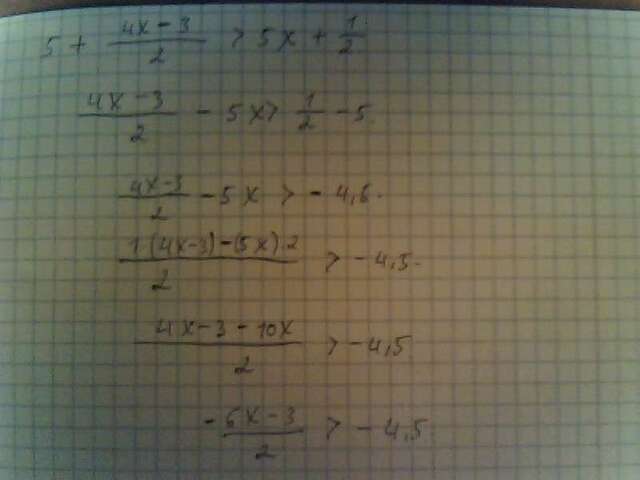 5 + (4x - 3)/2 > 5x + 1/2
(4x - 3)/2 - 5x > 1/2 - 5
(4x-3)/2 - 5x > - 4,5.
(1·(4x-3)-(5x)·2)/2 > - 4,5.
(4x - 3 - 10x)/2 > - 4,5
- (6x - 3)/2 > - 4,5